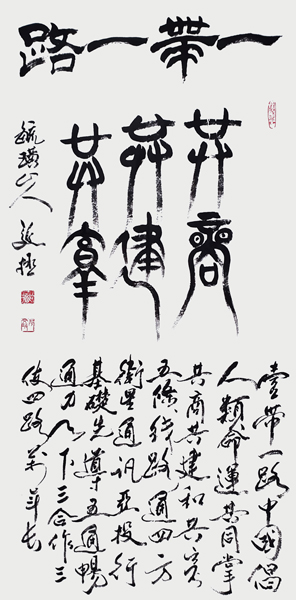 一帶一路
共商
共建
共享
毓璜山人
壹帶一路中國倡
人類命運共同掌
共商共建和共
五條线路通四方
衛星通訊亞投行
基礎先導五通暢
通力下三合作三
四路萬年长